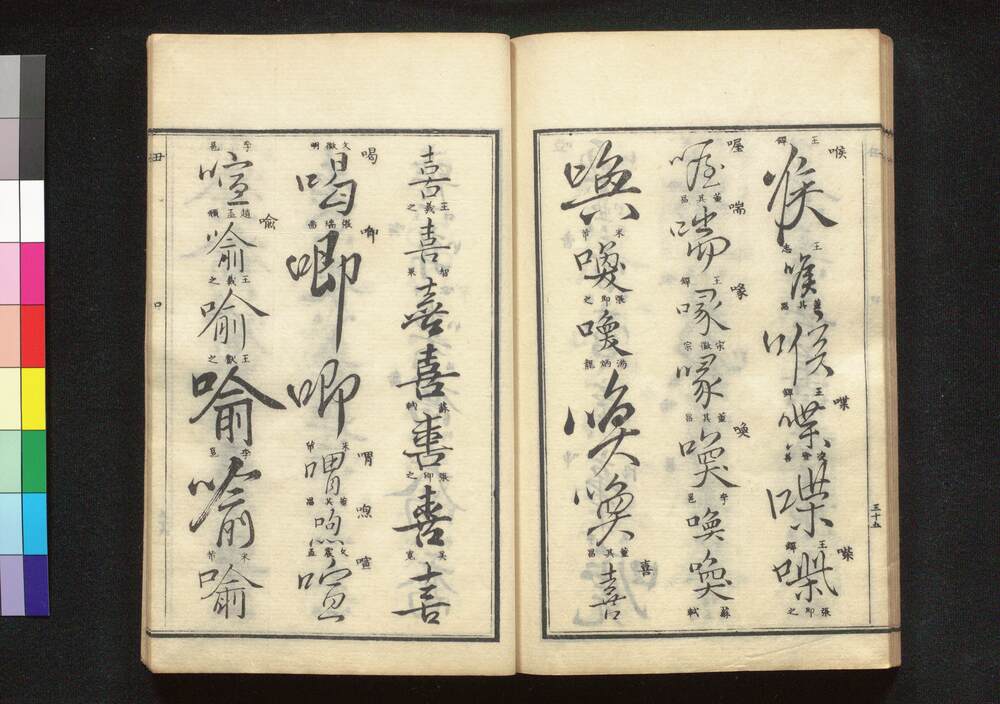 喉
王鐸
喉
王忠
喉
董其昌
喉
喋
王鐸
喋
喋
㗫
王鐸
張即之
三十五
喔
喔
董其昌
喘
喘
王鐸
喙
喙
宋徽宗
喙
董其昌
喚
喚
李邕
喚
喚
蘇軾
喚
米芾
喚
張即之
喚
鴻炳龍
喚
喚
董其昌
喜
喜
喜
王羲之
喜
智果
喜
喜
蘇軾
喜
張即之
喜
吴寬
喜
喝
文徵明
喝
張瑞圖
喞
喞
喞
米芾
喟
喟
董其昌
喣
文震孟
喧
喧
李邕
喧
趙孟頫
喻
喻
王羲之
喻
王獻之
喻
李邕
喻
米芾
喻
丑
口